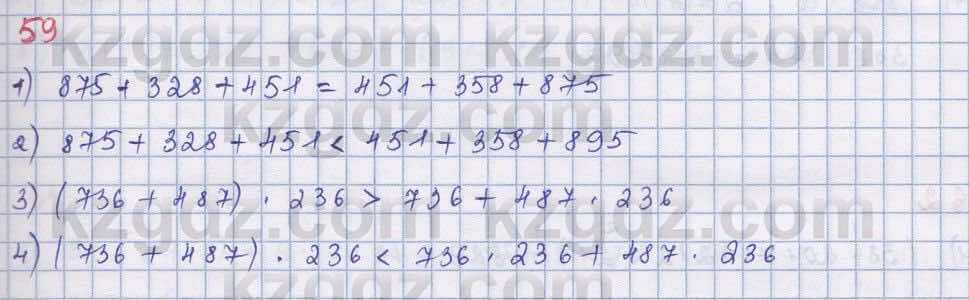 59
kzgdz.com kzgdz.com
1) 875 + 328 + 451 = 451 + 358 + 875
kzgdz.com
2) 875 + 328 + 451 < 451 + 358 + 895
3) (736 + 487) · 236 > 736 + 487 · 236
kzgdz.com kzgdz.com
4) (736 + 487) · 236 < 736 · 236 + 487 · 236
kzgdz.com